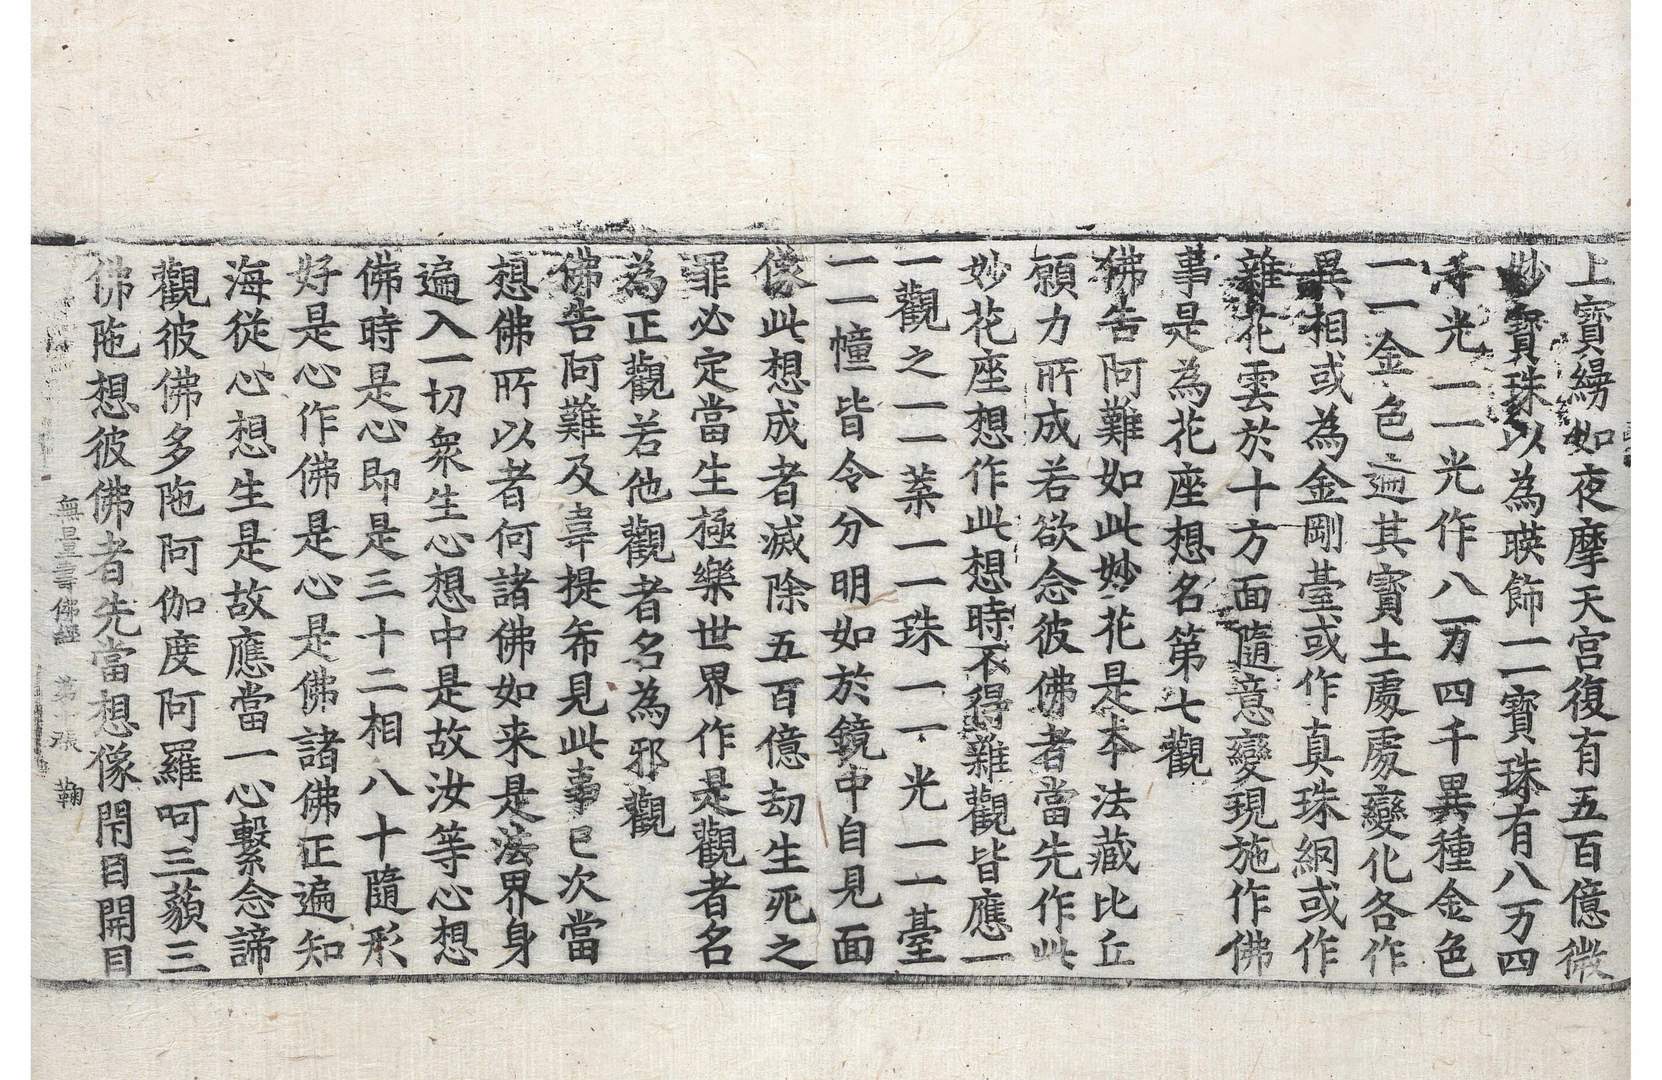 上寳縵如夜摩天宮復有五百億微
妙寳珠以為暎飾一一寳珠有八万四
千光一一光作八万四千異種金色
一一金色遍其寳土處處變化各作
異相或為金剛臺或作真珠網或作
雜花雲於十方面隨意變現施作佛
事是為花座想名第七觀
佛告阿難如此妙花是本法藏比丘
願力所成若欲念彼佛者當先作此
妙花座想作此想時不得雜觀皆應一
一觀之一一葉一一珠一一光一一臺
一一幢皆令分明如於鏡中自見面
像此想成者滅除五百億劫生死之
罪必定當生極樂世界作是觀者名
為正觀若他觀者名為邪觀
佛告阿難及韋提希見此事已次當
想佛所以者何諸佛如来是法界身
遍入一切衆生心想中是故汝等心想
佛時是心即是三十二相八十隨形
好是心作佛是心是佛諸佛正遍知
海從心想生是故應當一心繫念諦
觀彼佛多陁阿伽度阿羅呵三藐三
佛陁想彼佛者先當想像閇目開目
無量壽佛經 第十張 鞠